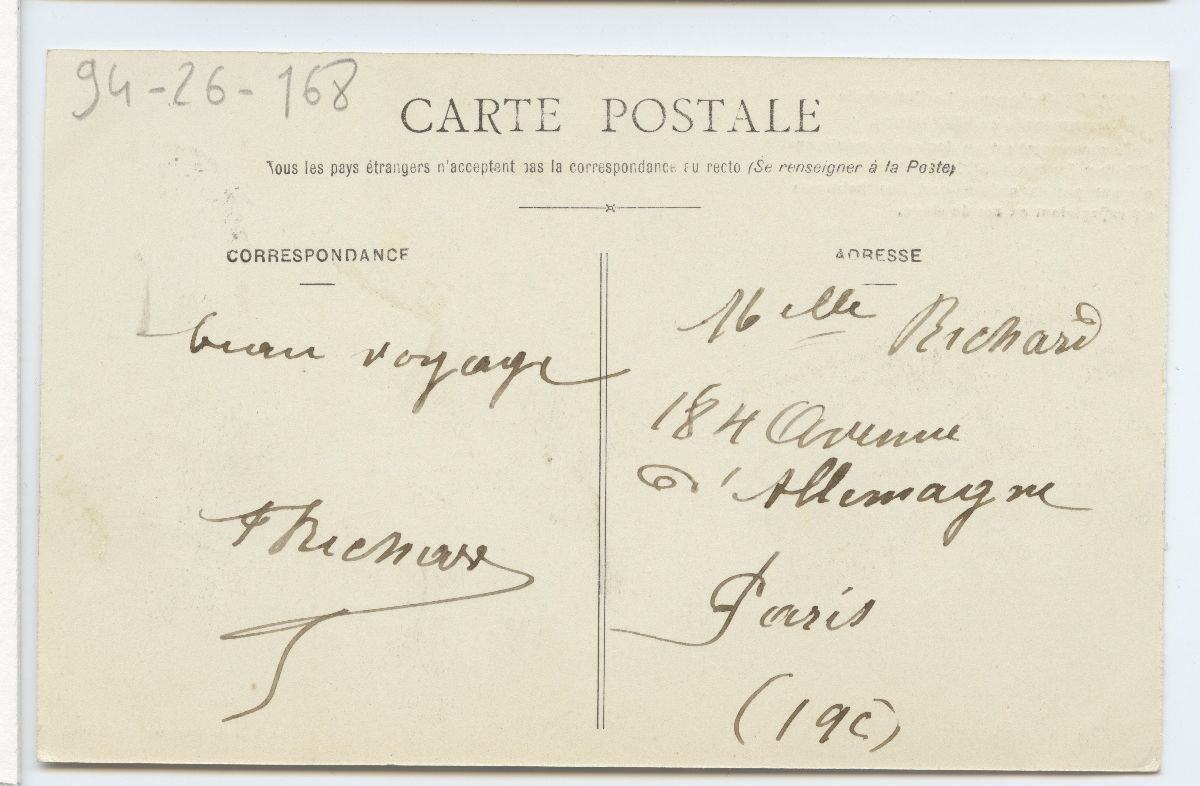 94-26-168
CARTE POSTALE
Tous les pays étrangers n'acceptent pas la correspondance au recto (Se renseigner à la Poste)
CORRESPONDANCE
ADRESSE
bean voyage
F Richard
Melle Richard
184 Avenue
d'Allemagne
Paris
(19e)